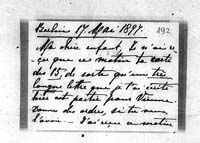 Berlin 17 Mai 1897. 192
Ma chère enfant, Je n'ai re-
çu que ce matin ta carte
du 15, de sorte qu'une très
longue lettre que je t'ai écrite
hier est partie pour Vienne.
donne des ordres, si tu veux
l'avoir. J'ai reçu ce matin